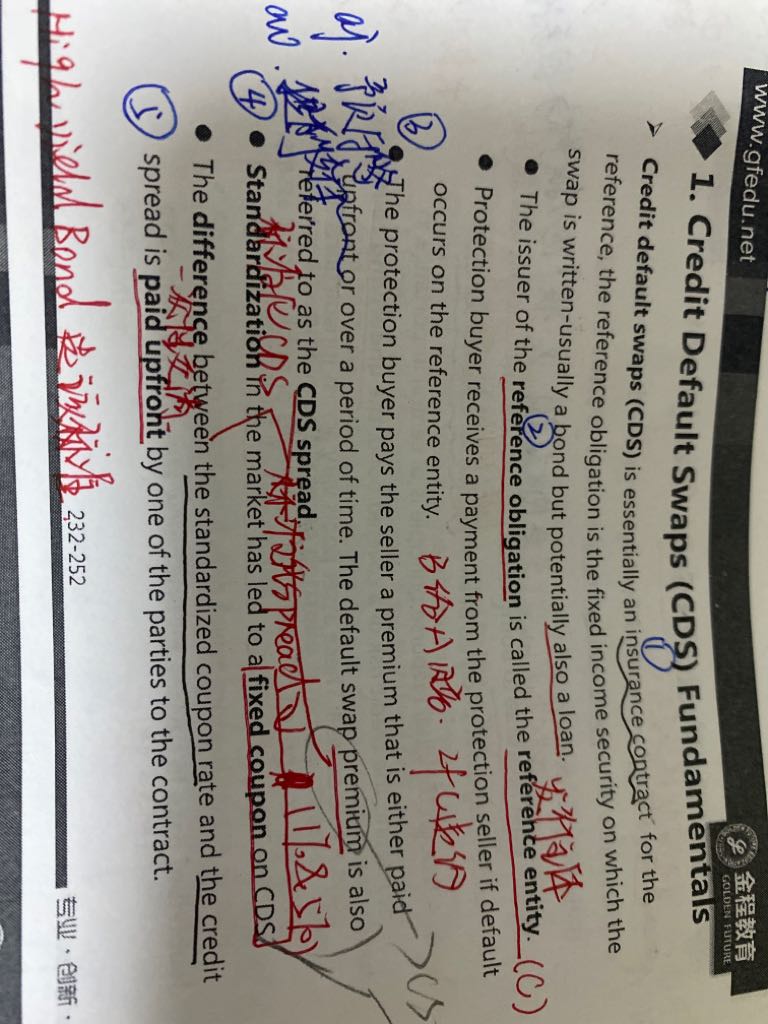 www.gfedu.net
金程教育
GOLDEN FUTURE
1. Credit Default Swaps (CDS) Fundamentals
➤ Credit default swaps (CDS) is essentially an insurance contract for the
①
reference, the reference obligation is the fixed income security on which the
swap is written-usually a bond but potentially also a loan.
②
发行主体
• The issuer of the reference obligation is called the reference entity. (C)
• Protection buyer receives a payment from the protection seller if default
occurs on the reference entity.
③
• The protection buyer pays the seller a premium that is either paid
upfront or over a period of time. The default swap premium is also
referred to as the CDS spread
④
• Standardization in the market has led to a fixed coupon on CDS
标准化CDS
spread
1% & 5%
• The difference between the standardized coupon rate and the credit
⑤
spread is paid upfront by one of the parties to the contract.
High Yield Bond
232-252
专业·创新·